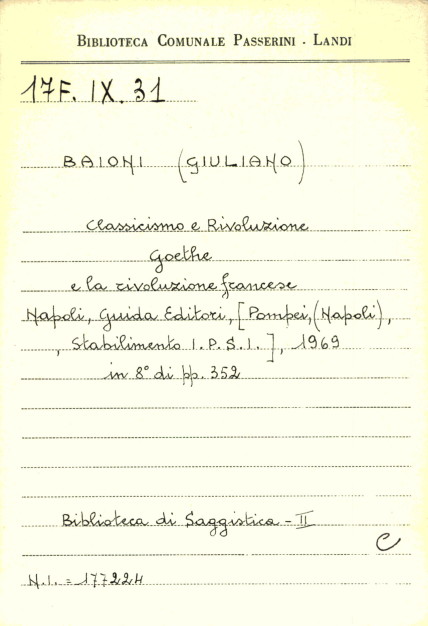 BIBLIOTECA COMUNALE PASSERINI - LANDI
17F. IX. 31
BAIONI (GIULIANO)
Classicismo e Rivoluzione
Goethe
e la rivoluzione francese
Napoli, Guida Editori, [Pompei, (Napoli),
, Stabilimento I.P.S.I.], 1969
in 8° di pp. 352
Biblioteca di Saggistica - II
C
N.I. = 177224